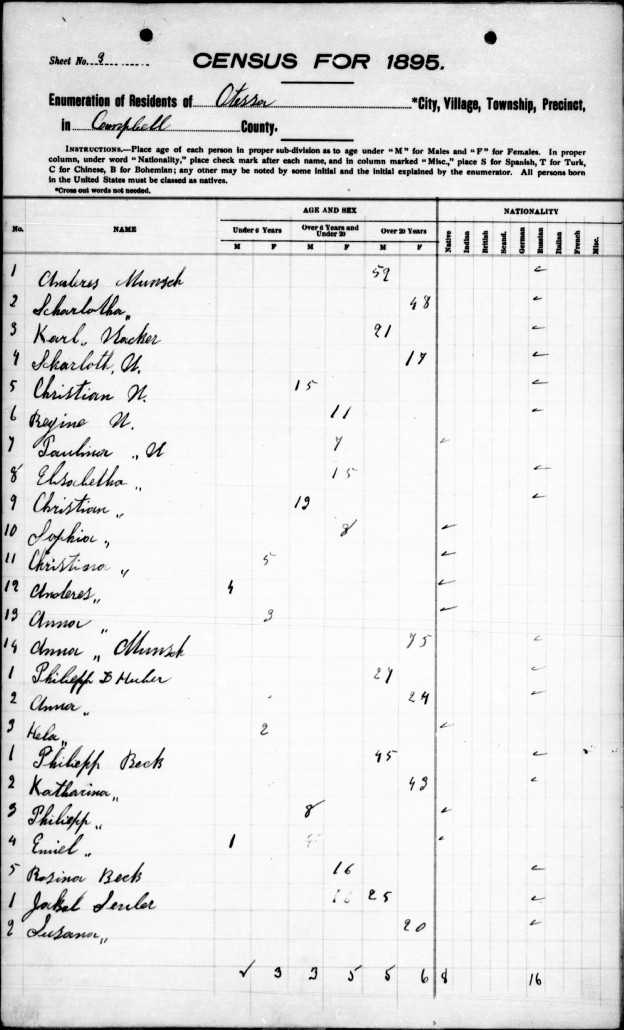 Sheet No. 9
CENSUS FOR 1895.
Enumeration of Residents of Otessa *City, Village, Township, Precinct,
in Campbell County.
INSTRUCTIONS.—Place age of each person in proper sub-division as to age under "M" for Males and "F" for Females. In proper
column, under word "Nationality," place check mark after each name, and in column marked "Misc.," place S for Spanish, T for Turk,
C for Chinese, B for Bohemian; any other may be noted by some initial and the initial explained by the enumerator. All persons born
in the United States must be classed as natives.
*Cross out words not needed.
AGE AND SEX NATIONALITY
No. NAME Under 6 Years Over 6 Years and Under 20 Over 20 Years Native Indian British Scand. German Russian Italian French Misc.
M F M F M F
1 Anderes Munsch 52 ✓
2 Scharlotha „ 48 ✓
3 Karl „ Nacker 21 ✓
4 Skarloth. N. 17 ✓
5 Christian N. 15 ✓
6 Regine N. 11 ✓
7 Paulina „ N 7 ✓
8 Elisabetha „ 15 ✓
9 Christian „ 13 ✓
10 Sophia „ 8 ✓
11 Christina „ 5 ✓
12 Anderes „ 4 ✓
13 Anna „ 3 ✓
14 Anna „ Munsch 75 ✓
1 Philiepp Huber 27 ✓
2 Anna „ 24 ✓
3 Hela „ 2 ✓
1 Philiepp Beck 45 ✓
2 Katharina „ 43 ✓
3 Philiepp „ 8 ✓
4 Emiel „ 1 ✓
5 Rosina Beck 16 ✓
1 Jakob 25 ✓
2 Susana „ 20 ✓
✓ 3 3 5 5 6 8 16